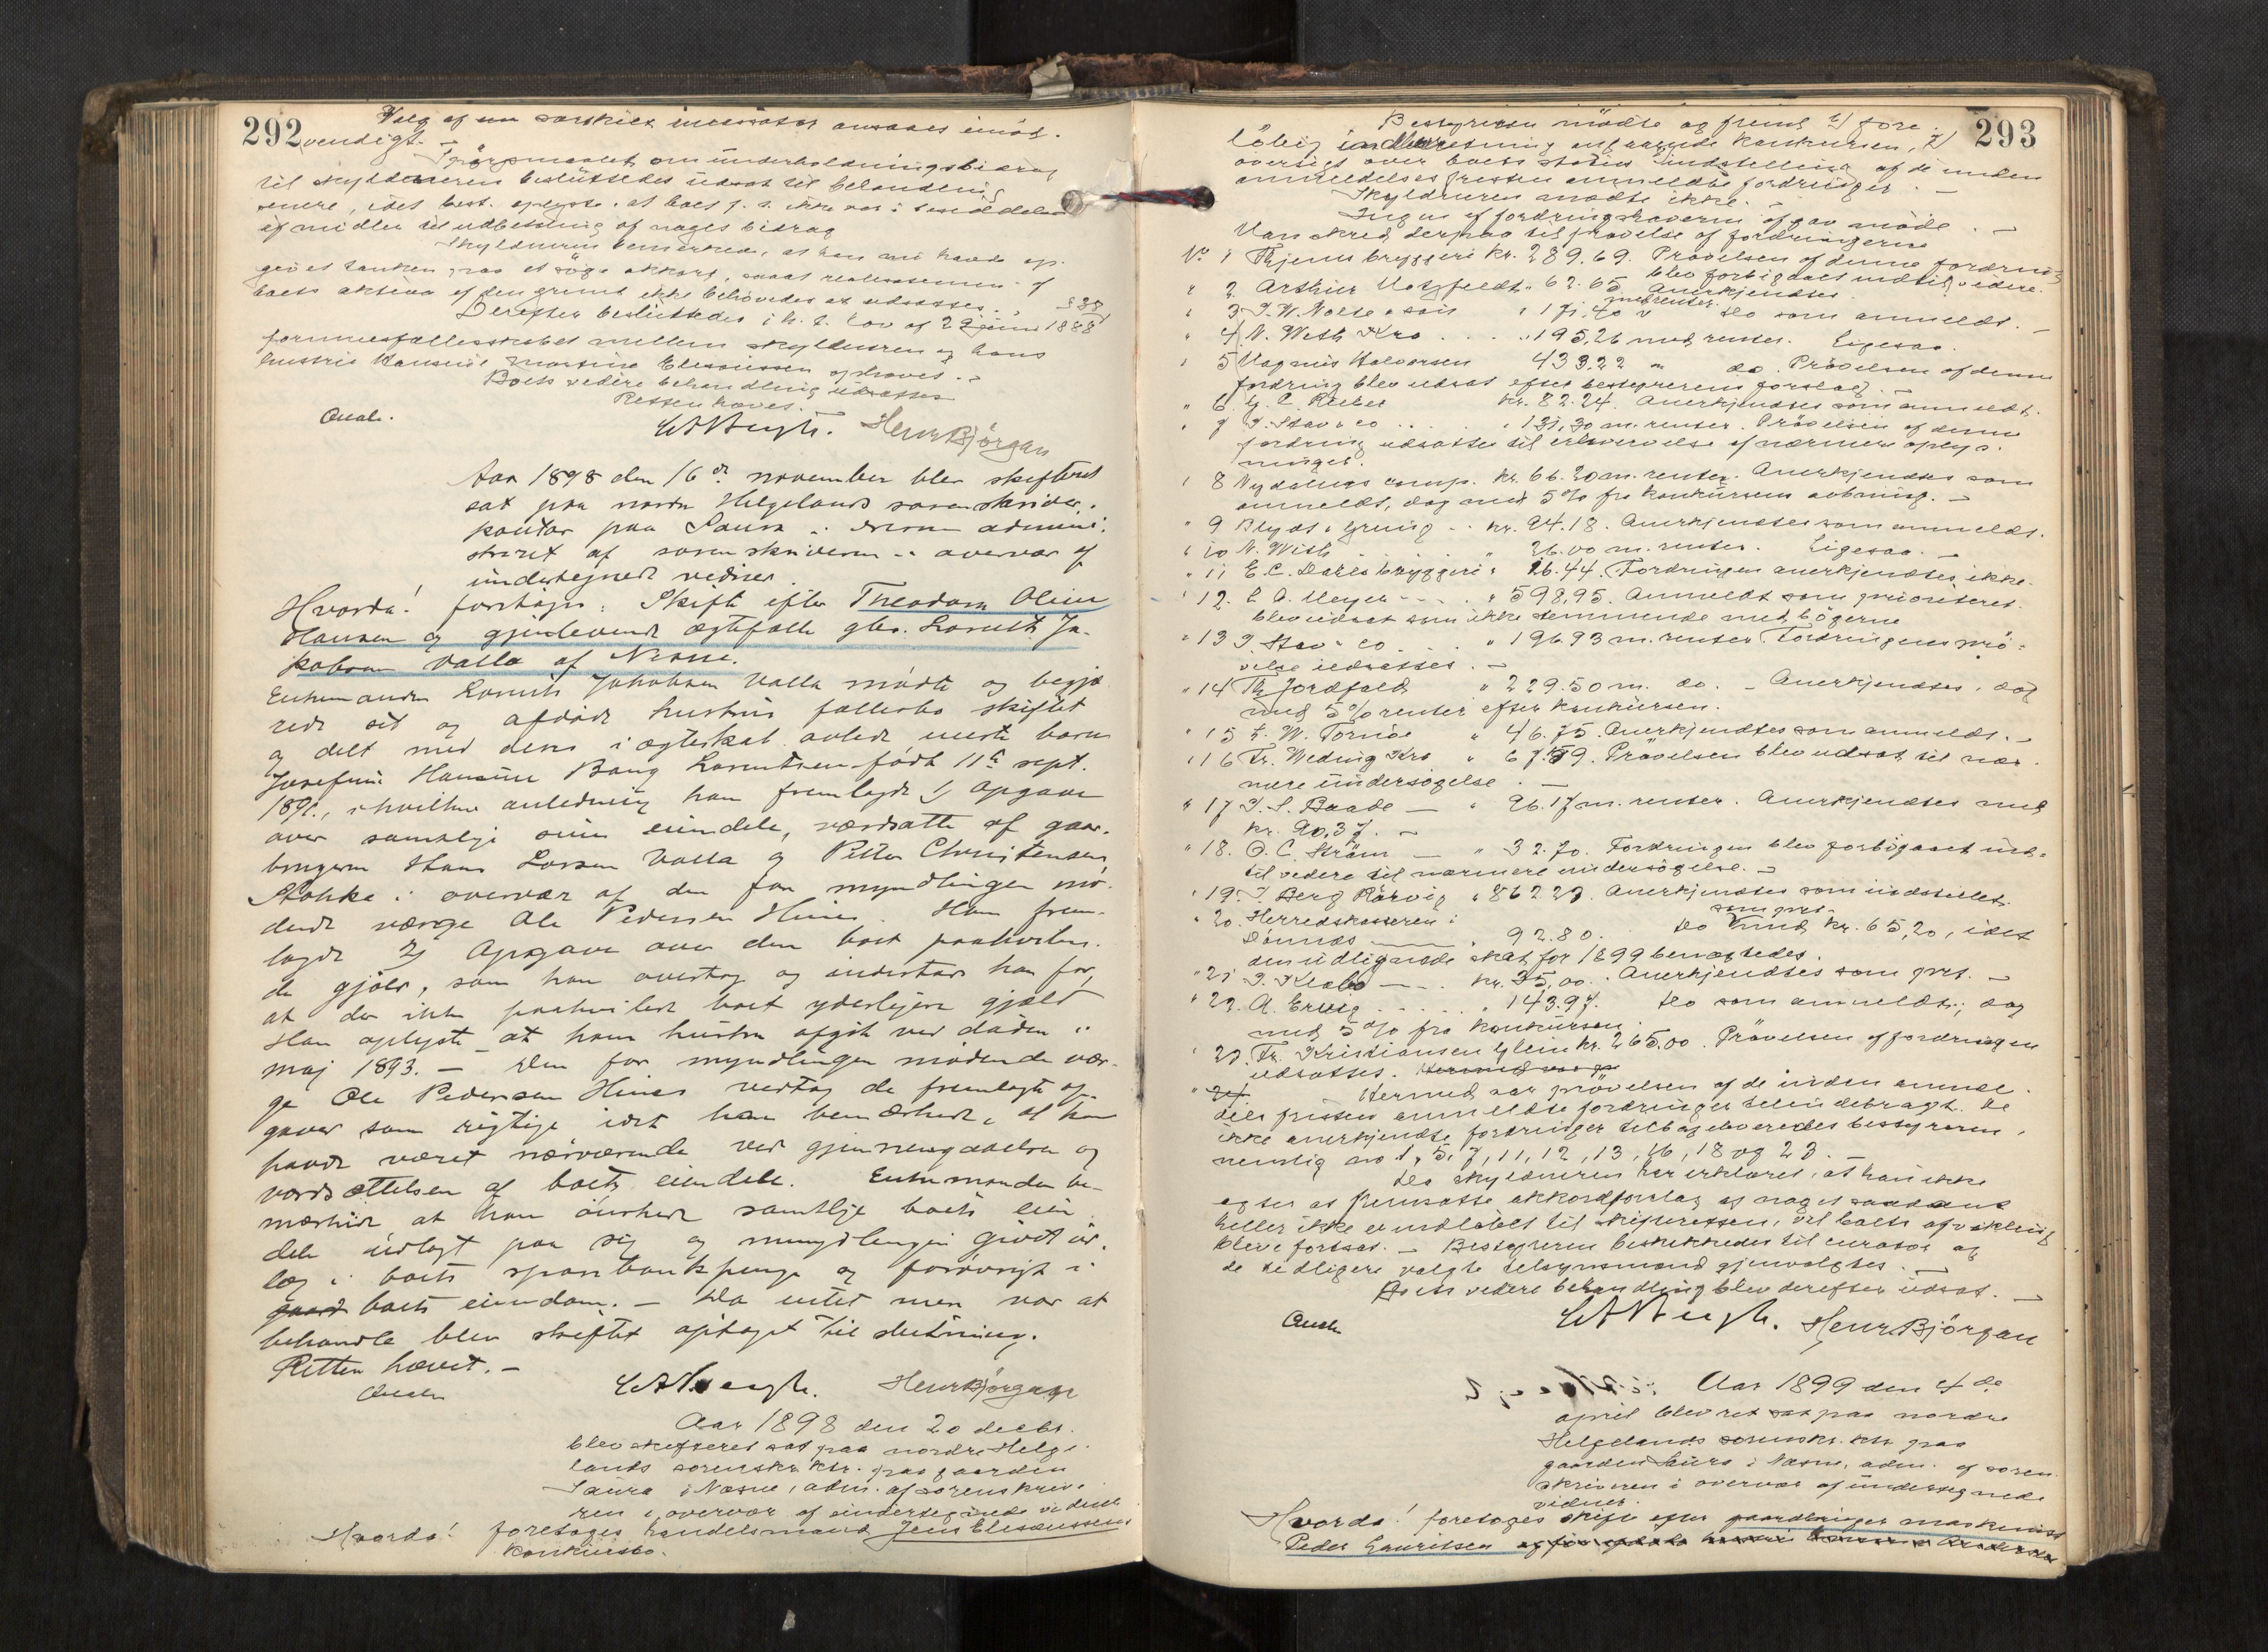 292
Valg af en særskilt incassator ansaaes unød-
vendigt. –
Spørgsmaalet om underholdningsbidrag
til skyldneren besluttedes udsat til behandling
senere, idet best. oplyste, at boet f. t. ikke var i besiddelse
af midler til udbetaling af noget bidrag
Skyldneren bemerkede, at han nu havde op-
givet tanken paa at søge akkord, saaat realisationen af
boets aktiva af den grund ikke behøvedes at udsættes.
Derefter besluttedes i h. t. lov af 29 juni 1888 § 38,
formuesfællesskabet mellem skyldneren og hans
hustru Hansine Martine Eliseussen ophævet. –
Boets videre behandling udsattes
Retten hævet. –
Qvale. Henr Bjørgan
Aar 1898 den 16de november blev skifteret
sat paa nordre Helgelands sorenskriver-
kontor paa Saura i Nesne admini-
streret af sorenskriveren i overvær af
undertegnede vidner.
Hvorda! foretoges: Skifte efter Theodora Oline
Hansen og gjenlevende ægtefælle gbr. Lorents Ja-
kobsen Valla af Nesne.
Enkemanden Lorents Jakobsen Valla mødte og begjæ
rede sit og afdøde hustrus fællesbo skiftet
og delt med dens i ægteskab avlede eneste barn
Josefine Hansine Bang Lorentsen født 11te sept.
189, i hvilken anledning han fremlagde 1) Opgave
over samtlige sine eiendele, værdsatte af gaar-
brugerne Hans Larsen Valla og Peter Christensen
Stokka i overvær af den for myndlingen mø-
dende værge Ole Pedersen Hines. Han frem-
lagde 2) Opgave over den boet paahvilen-
de gjæld, som han overtog og indestaar han for,
at der ikke paahviler boet yderligere gjæld
Han oplyste at hans hustru afgik ved døden i
maj 1893. – Den for myndlingen mødende vær-
ge Ole Pedersen Hines vedtog de fremlagte op-
gaver som rigtige idet han bemærkede, at han
havde været nærværende ved gjennemgaaelsen og
værdsættelsen af boets eiendele. Enkemanden be-
mærkede at han ønskede samtlige boets eien
dele udlagt paa sig og myndlingen givet ud-
læg i boets sparebankpenge og forøvrigt i
gaard boets eiendom. – Da intet mere var at
behandle blev skiftet optaget til slutning.
Retten hævet. –
Qvale Henr Bjørgan
Aar 1898 den 20 decbr.
blev skifteret sat paa nordre Helge-
lands sorenskr. ktr. paa gaarden
Saura i Nesne, adm. af sorenskrive
ren i overvær af undertegnede vidner
Hvorda! foretoges handelsmand Jens Eliseussens
konkursbo.
293
Bestyreren mødte og freml 1) fore-
løbig indberetning angaaende konkursen, 2)
oversigt over boets status indstilling af de inden
anmeldelsesfristen anmeldte fordringer. –
Skyldneren mødte ikke. –
Ingen af fordringshaverne afgav møde. –
Man skred derpaa til prøvelse af fordringerne
No 1 Thjems bryggeri kr. 289.69. Prøvelsen af denne fordring
blev forbigaaet indtil videre.
" 2. Arthur Motzfeldt " 62.65 Anerkjendtes.
" 3 J. W. Nolte & søn " 171.40 med renter. do som anmeldt. –
" 4 N. With Kro . . . . " 195,26 med renter. Ligesaa.
" 5 Magnus Halvorsen 433.22 " do. Prøvelsen af denne
fordring blev udsat efter bestyrerens forslag. –
" 6. G. C. Rieber kr. 82.24. Anerkjendtes som anmeldt.
" 7 J. Stav & co . . . " 131,30 m. renter. Prøvelsen af denne
fordring udsattes til erhvervelse af nærmere oplys-
ninger.
" 8 Nydalens comp. kr. 66.20 m. renter. Anerkjendtes som
anmeldt, dog med 5% fra konkursens aabning. –
" 9 Blydt & Gruing . . kr. 94.18. Anerkjendtes som anmeldt.
" 10 N. With . . . . " 26.00 m. renter. Ligesaa. –
" 11 E. C. Dahls bryggeri " 16.44. Fordringen anerkjendtes ikke.
" 12. E A. Meyer - - - . " 598,95. Anmeldt som prioriteret.
blev udsat som ikke stemmende med bøgerne
" 13 J. Stav & co . . . " 196.93 m. renter. Fordringens prø-
velse udsattes. –
" 14 Th Jordfald " 229.50 m. do. – Anerkjendtes, dog
med 5% renter efter konkursen.
" 15 E. W. Tornøe " 46.75. Anerkjendtes som anmeldt. –
" 16 Fr. Meding Kro " 67.59. Prøvelsen blev udsat til nær-
mere undersøgelse. –
" 17 J. S. Baade – " 96.17 m. renter. Anerkjendtes med
kr. 90,37. –
" 18. O. C. Strøm – " 32.70. Fordringen blev forbigaaet ind-
til videre til nærmere undersøgelse. –
" 19. J Berg Rørvig " 862 27. Anerkjendtes som indstillet.
" 20. Herredskassereren i
Dønnes —— " 92.80. do som prt. kund kr. 65,20, idet
den udlignede skat for 1899 benægtedes.
" 21 J. Klæbo – – . kr. 35,00. Anerkjendtes som prt. –
" 22. A. Ervig . . . . . " 143.97. do som anmeldt; dog
med 5% fra konkursen.
" 23. Fr. Kristiansen Glein kr. 265.00. Prøvelsen af fordringen
udsattes. Hermed var p
" 24. Hermed var prøvelsen af de inden anmel-
delsfristen anmeldte fordringer tilendebragt. De
ikke anerkjendte fordringer tilbageleveredes bestyreren,
nemlig no 1, 5, 7, 11, 12, 13, 16, 18 og 23. –
Da skyldneren har erklæret, at han ikke
agter at fremsætte akkordforslag og noget saadant
heller ikke er indløbet til skifteretten, vil boets afvikling
blive fortsat. – Bestyreren beskikkedes til curator og
de tidligere valgte tilsynsmænd gjenvalgtes. –
Boets videre behandling blev derefter udsat. –
Qvale Henr Bjørgan
Aar 1899 den 4de
april blev ret sat paa nordre
Helgelands sorenskr. ktr. paa
gaarden Saura i Nesne, adm. af soren
skriveren i overvær af undertegnede
vidner.
Hvorda! foretoges skifte efter gaardbruger maskinist
Peder Lauritsen